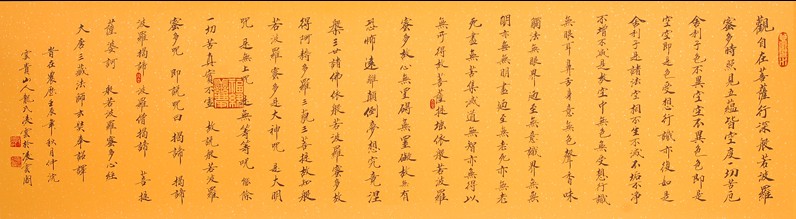 觀自在菩薩行深般若波羅
蜜多時照見五蘊皆空度一切苦厄
舍利子色不異空空不異色色即是
空空即是色受想行識亦復如是
舍利子是諸法空相不生不滅不垢不淨
不增不減是故空中無色無受想行識
無眼耳鼻舌身意無色聲香味
觸法無眼界乃至無意識界無無
明亦無無明盡乃至無老死亦無老
死盡無苦集滅道無智亦無得以
無所得故菩提薩埵依般若波羅
蜜多故心無罣礙無罣礙故無有
恐怖遠離顛倒夢想究竟涅
槃三世諸佛依般若波羅蜜多故
得阿耨多羅三藐三菩提故知般
若波羅蜜多是大神咒是大明
咒是無上咒是無等等咒能除
一切苦真實不虛故說般若波羅
蜜多咒即說咒曰揭諦揭諦
波羅揭諦波羅僧揭諦菩提
薩婆訶般若波羅蜜多心經
大唐三藏法師玄奘奉詔譯
時在農曆壬辰年秋月仲浣
山人龍氏凌雲於凌雲閣